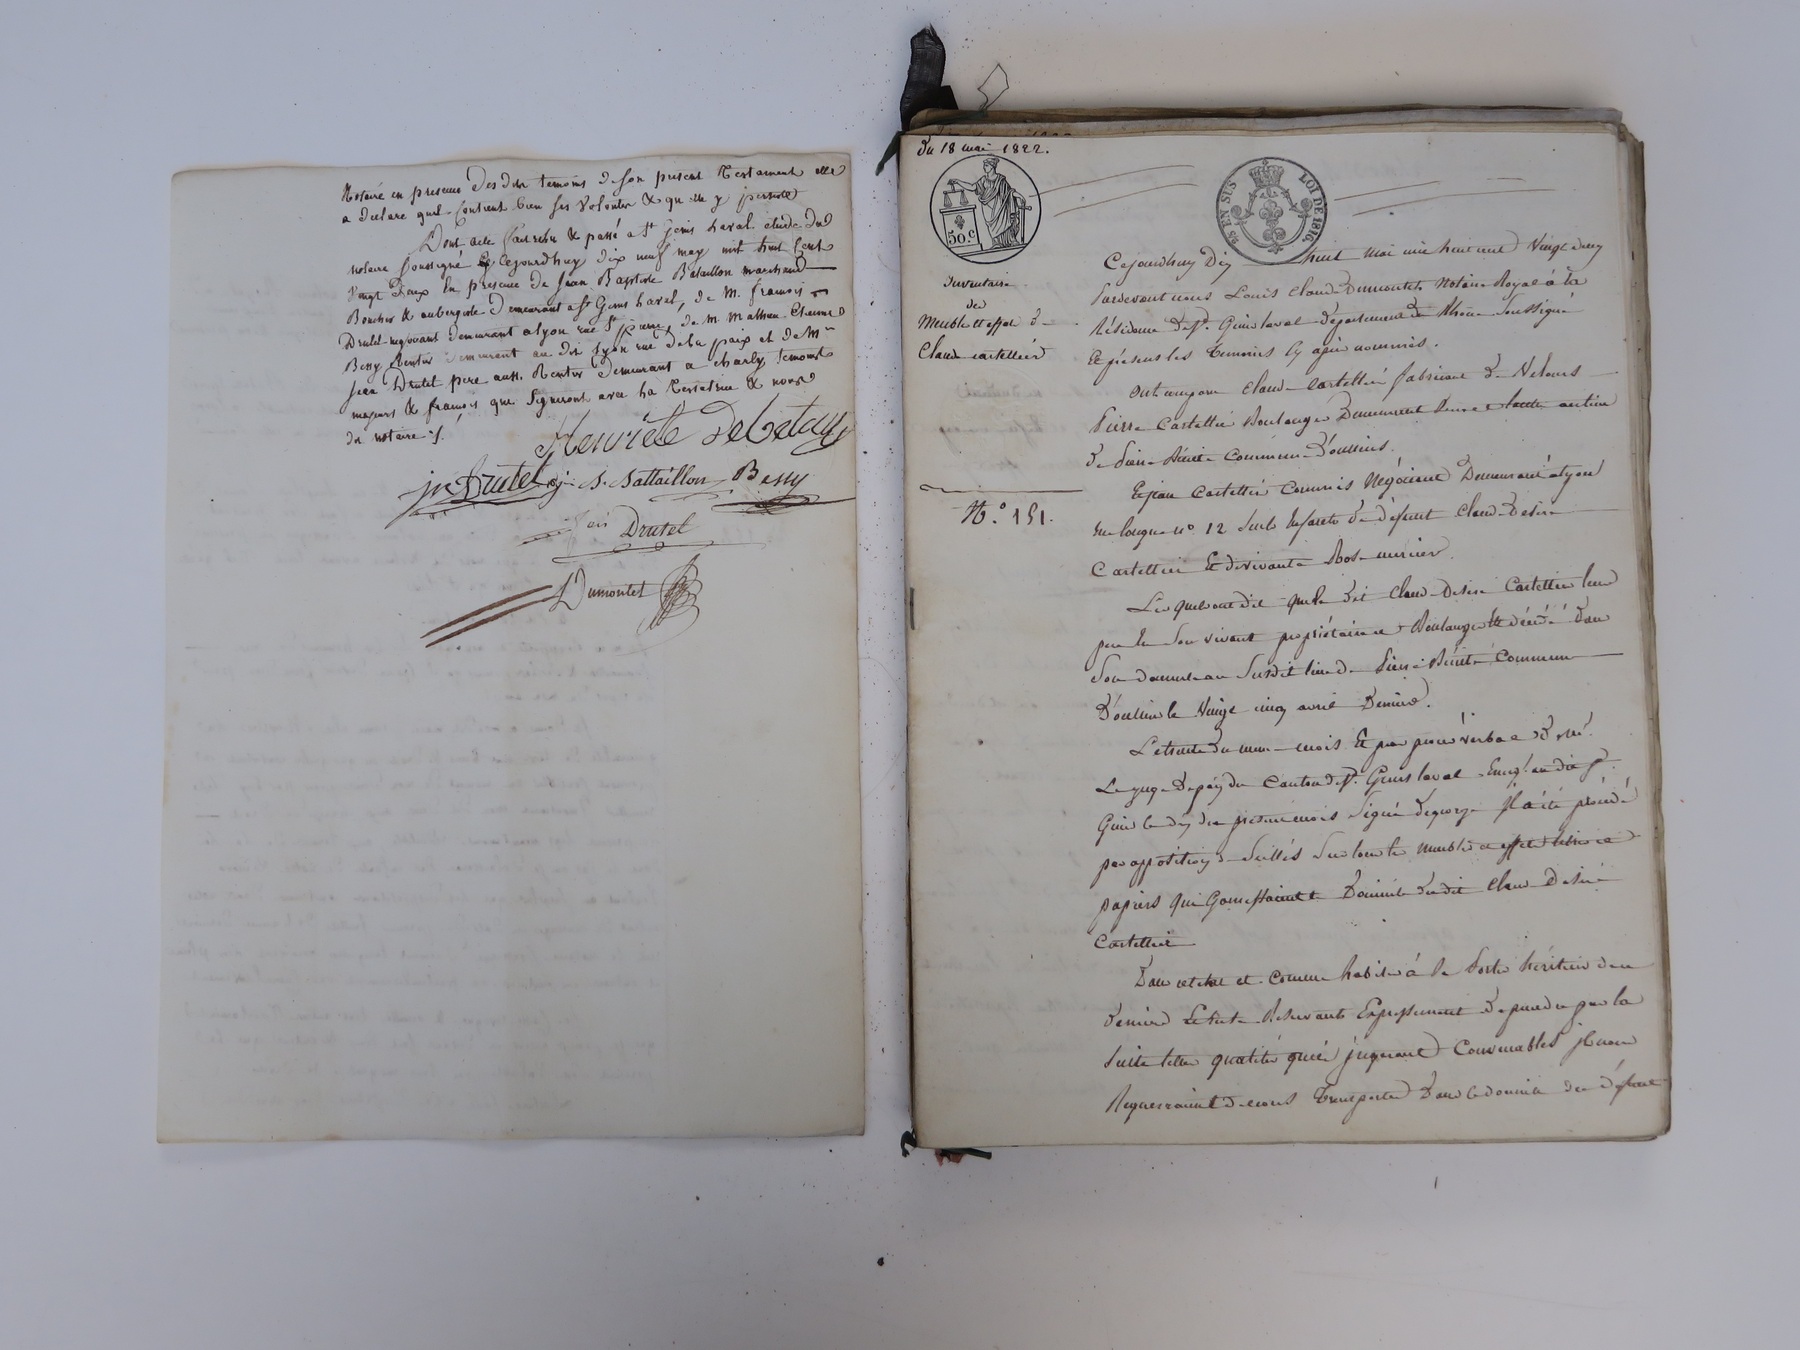 Notaire en presence des dits temoins de son present Testament elle
a declaré quil contient bien ses volontés & qu'elle y persiste
Dont acte fait relu & passé a St Genis Laval étude du
notaire soussigné Cejourdhuy dix neuf may mil huit Cent
Vingt Deux en presence de Jean Baptiste Bataillon marchand
Boucher & aubergiste demeurant a St Genis Laval, de M. françois
Drutel négociant demeurant a lyon rue St pierre, de M. Mathieu
Bessy Rentier demeurant au dit Lyon rue de la paix et de Mr
Jean Drutel pere aussi Rentier demeurant a charly temoins
majeurs & français qui signeront avec la Testatrice & nous
dit notaire ./.
Henriete
jn Drutel j. B. Battaillon Bessy
fois Drutel
Dumontet
Du 18 mai 1822.
50.c
EN SUS
LOI DE 1816.
Inventaire
des
Meubles et effets de
Claude cartellier
N.° 151.
Cejourdhuy Dix huit mai mil huit cent Vingt deux
Pardevant nous Louis Claude Dumontet Notaire Royal à la
Résidence de St. Genis laval département du Rhône Soussigné
Et présents les Témoins cy après nommés.
Ont comparu Claude Cartellier fabricant de Velours
Pierre Cartellier Boulanger Demeurant
de Pierre Bénite Commune d'oullins.
Et jean Cartellier Commis Négociant Demeurant à lyon
rue longue n° 12 Seuls Enfants de défunt Claude Désiré
Cartellier Et de vivante Rose mercier.
Lesquels ont dit que le dit Claude Désiré Cartellier leur
pere En Son vivant propriétaire et Boulanger Est décédé dans
Son domicile au Susdit lieu de Pierre Bénite Commune
D'oullins le Vingt cinq avril Dernier.
Le trente du même mois Et par procès verbal de Mr.
Le juge de paix du Canton de St. Genis laval Enregt. au dit St.
Genis le dix du présent mois Signé degeorge Il a été procédé
par apposition de Scellés Sur tous les Meubles et effets titres et
papiers qui Garnissaient le Domicile du dit Claude Désiré
Cartellier
Dans cet état et comme habiles à Se Porter héritiers de ce
dernier Et Sous Réserves Expresses de prendre par la
Suite telles qualités qu'ils jugeront Convenables ils nous
Requerraient de nous Transporter Dans le domicile du défunt